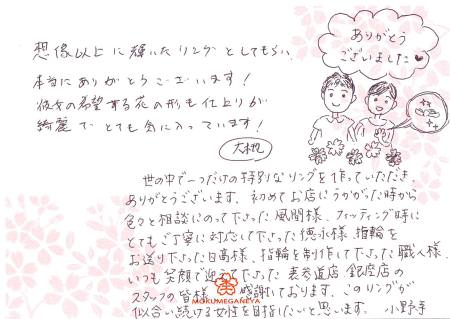 想像以上に輝いたリングとしてもらい
本当にありがとうございます！
彼女の希望する花の形も仕上りが
綺麗で とても気に入っています！
大槻
ありがとう
ございました
世の中で一つだけの特別なリングを作っていただき、
ありがとうございます。初めてお店にうかがった時から
色々と相談にのって下さった風間様、フィッティング時に
とてもご丁寧に対応して下さった徳永様、指輪を
お送り下さった日高様、指輪を制作して下さった職人様、
いつも笑顔で迎えて下さった表参道店 銀座店の
スタッフの皆様 感謝しております。このリングが
MOKUMEGANEYA
似合い続ける女性を目指したいと思います。 小野寺